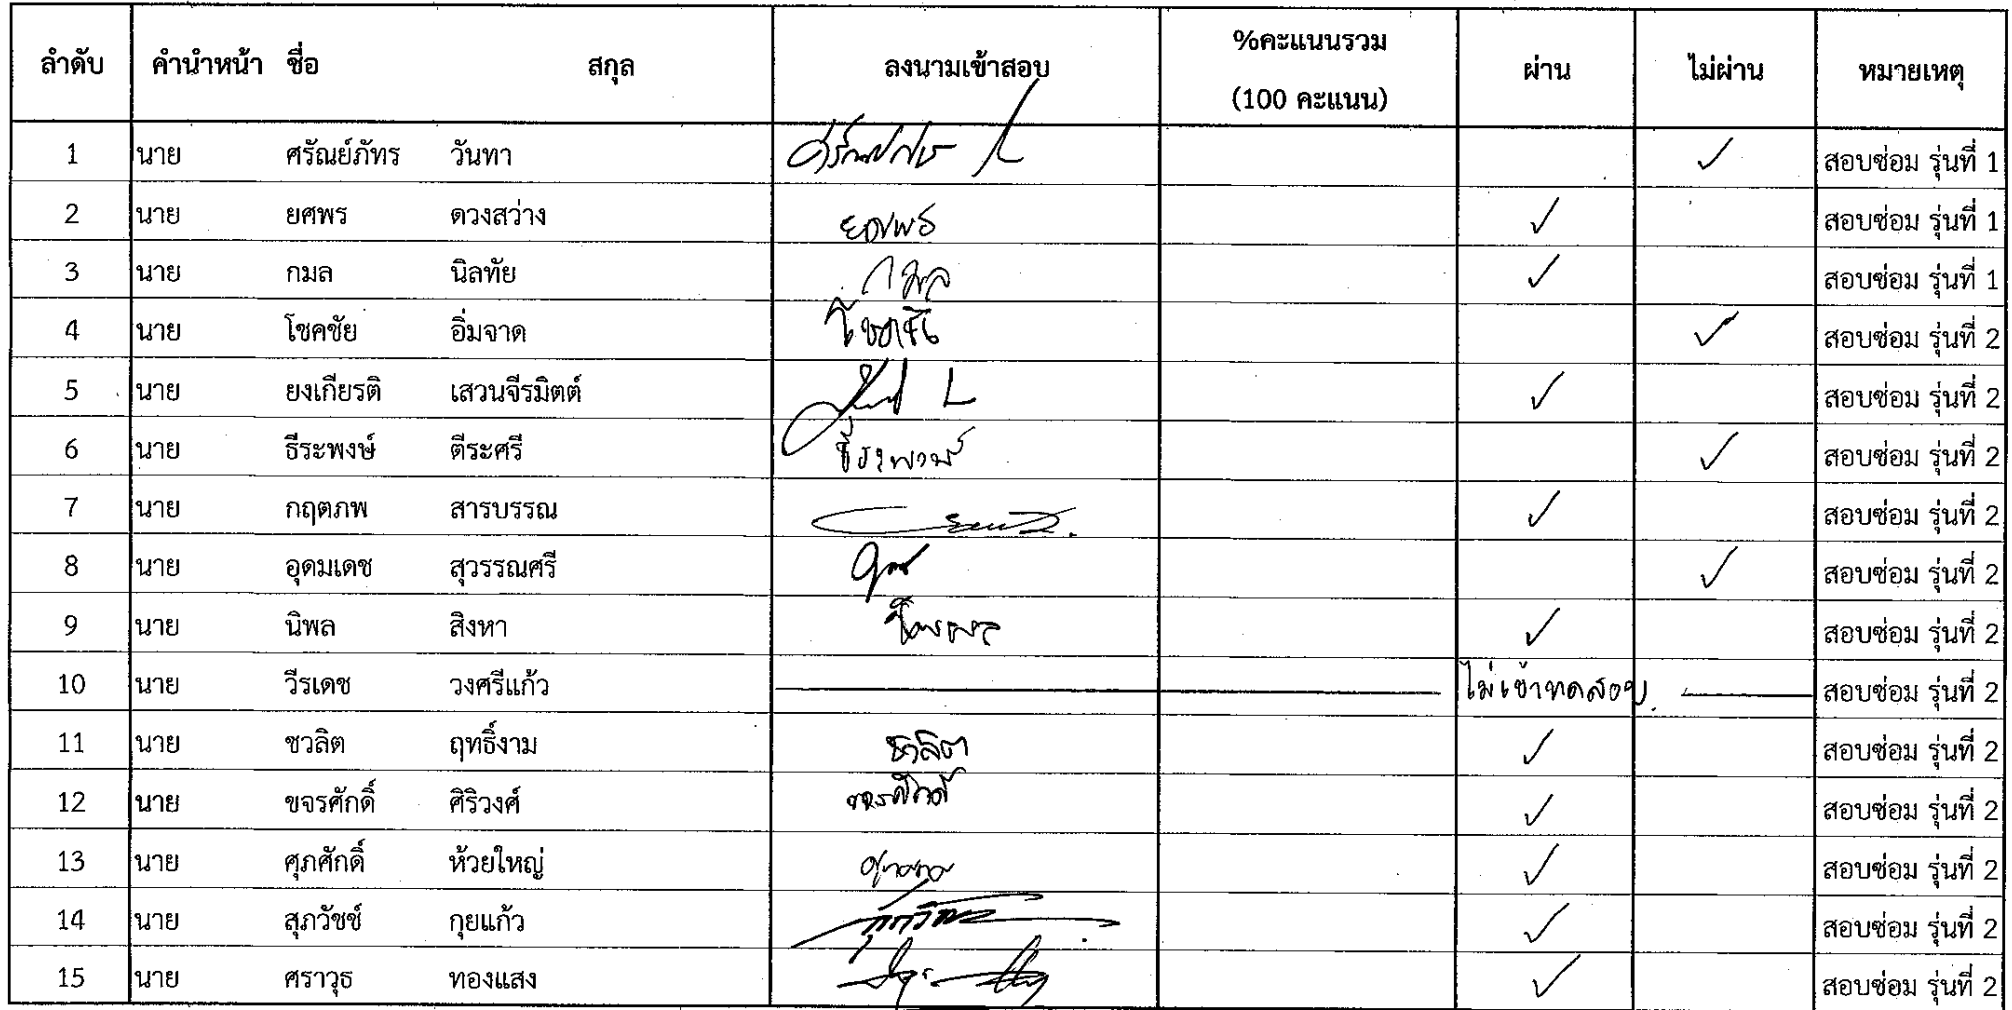 ลำดับ คำนำหน้า ชื่อ สกุล ลงนามเข้าสอบ %คะแนนรวม (100 คะแนน) ผ่าน ไม่ผ่าน หมายเหตุ
1 นาย ศรัณย์ภัทร วันทา ✓ สอบซ่อม รุ่นที่ 1
2 นาย ยศพร ดวงสว่าง ยศพร ✓ สอบซ่อม รุ่นที่ 1
3 นาย กมล นิลทัย กมล ✓ สอบซ่อม รุ่นที่ 1
4 นาย โชคชัย อิ่มจาด โชคชัย ✓ สอบซ่อม รุ่นที่ 2
5 นาย ยงเกียรติ เสวนจีรมิตต์ ✓ สอบซ่อม รุ่นที่ 2
6 นาย ธีระพงษ์ ตีระศรี ธีระพงษ์ ✓ สอบซ่อม รุ่นที่ 2
7 นาย กฤตภพ สารบรรณ ✓ สอบซ่อม รุ่นที่ 2
8 นาย อุดมเดช สุวรรณศรี ✓ สอบซ่อม รุ่นที่ 2
9 นาย นิพล สิงหา ✓ สอบซ่อม รุ่นที่ 2
10 นาย วีรเดช วงศรีแก้ว ไม่เข้าทดสอบ สอบซ่อม รุ่นที่ 2
11 นาย ชวลิต ฤทธิ์งาม ชวลิต ✓ สอบซ่อม รุ่นที่ 2
12 นาย ขจรศักดิ์ ศิริวงศ์ ขจรศักดิ์ ✓ สอบซ่อม รุ่นที่ 2
13 นาย ศุภศักดิ์ ห้วยใหญ่ ✓ สอบซ่อม รุ่นที่ 2
14 นาย สุภวัชช์ กุยแก้ว ✓ สอบซ่อม รุ่นที่ 2
15 นาย ศราวุธ ทองแสง ✓ สอบซ่อม รุ่นที่ 2